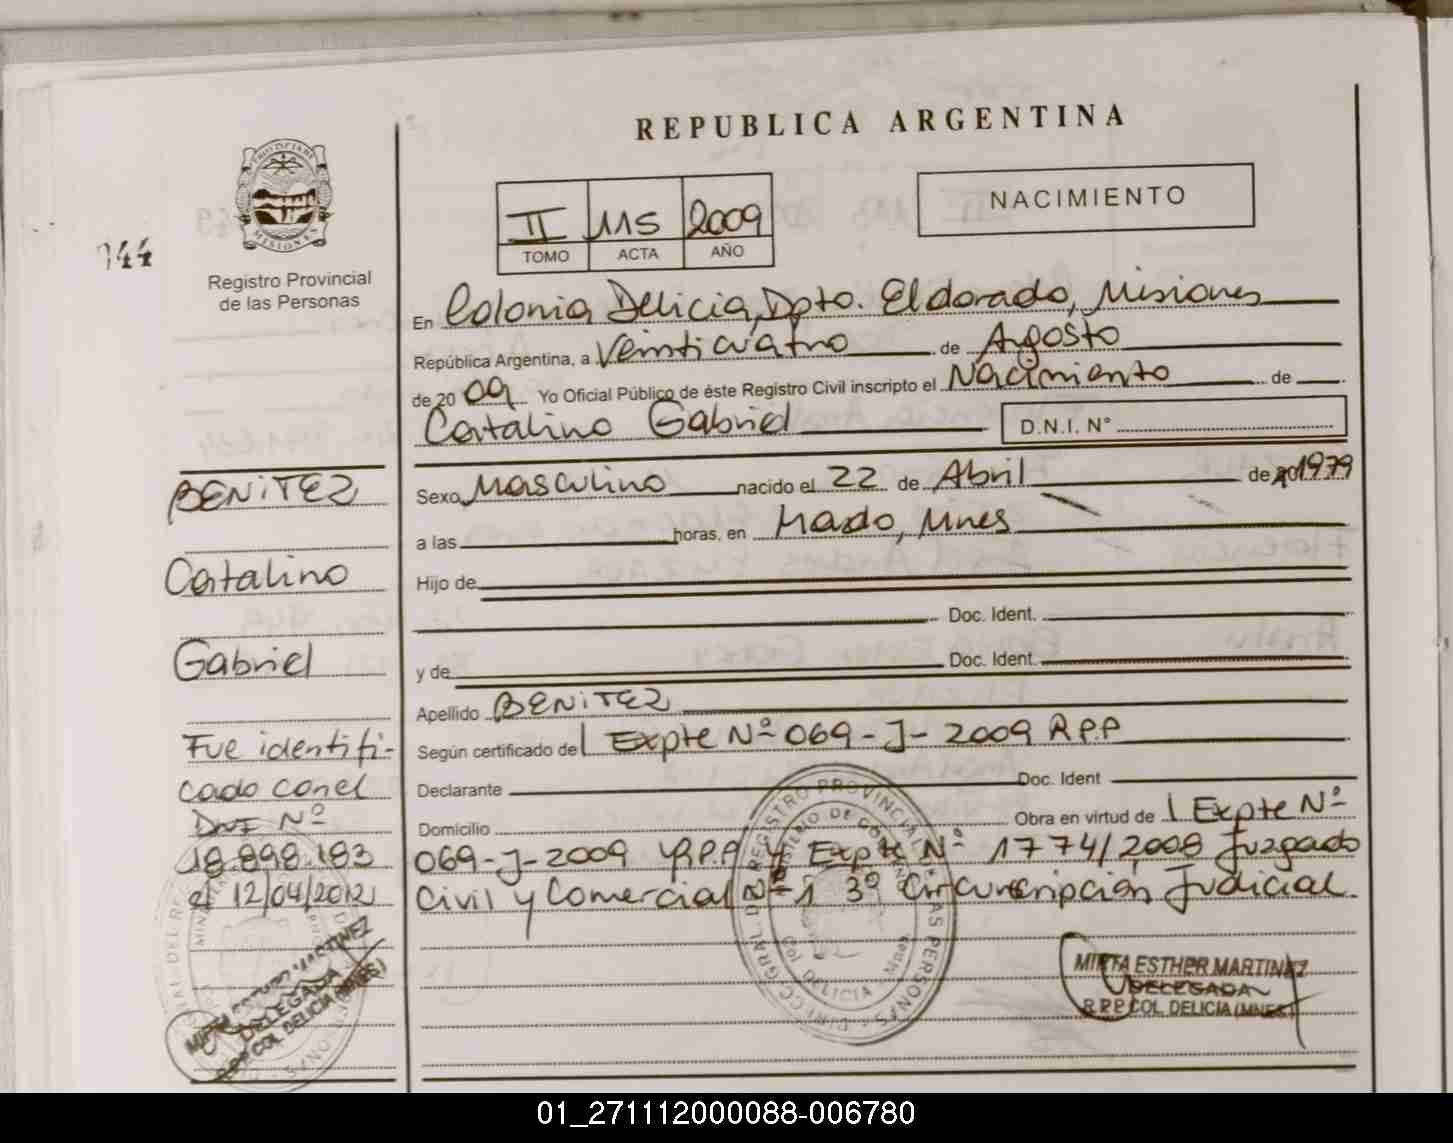 REPUBLICA ARGENTINA
PROVINCIA DE
MISIONES
144
Registro Provincial
de las Personas
II 115 2009
TOMO ACTA AÑO
NACIMIENTO
En Colonia Delicia, Dpto. Eldorado, Misiones
República Argentina, a Veinticuatro de Agosto
de 20 09 Yo Oficial Público de éste Registro Civil inscripto el Nacimiento de
Catalino Gabriel D.N.I. N°
Sexo Masculino nacido el 22 de Abril de 20 1979
a las horas, en Mado, Mnes
Hijo de
Doc. Ident.
y de Doc. Ident.
Apellido BENITEZ
Según certificado de Expte Nº 069-J-2009 R.P.P
Declarante Doc. Ident
Domicilio Obra en virtud de Expte Nº
069-J-2009 R.P.P y Expte Nº 1774/2008 Juzgado
Civil y Comercial Nº 1 3º Circunscripción Judicial.
BENITEZ
Catalino
Gabriel
Fue identifi-
cado con el
DNI Nº
18.898.183
el 12/04/2012
MIRTA ESTHER MARTINEZ
DELEGADA
R.P.P COL. DELICIA (MNES)
MIRTA ESTHER MARTINEZ
DELEGADA
R.P.P COL. DELICIA (MNES)
DIRECC. GRAL. DE REGISTRO PROVINCIAL DE LAS PERSONAS
MINISTERIO DE GOBIERNO
Col. DELICIA Mnes
01_271112000088-006780